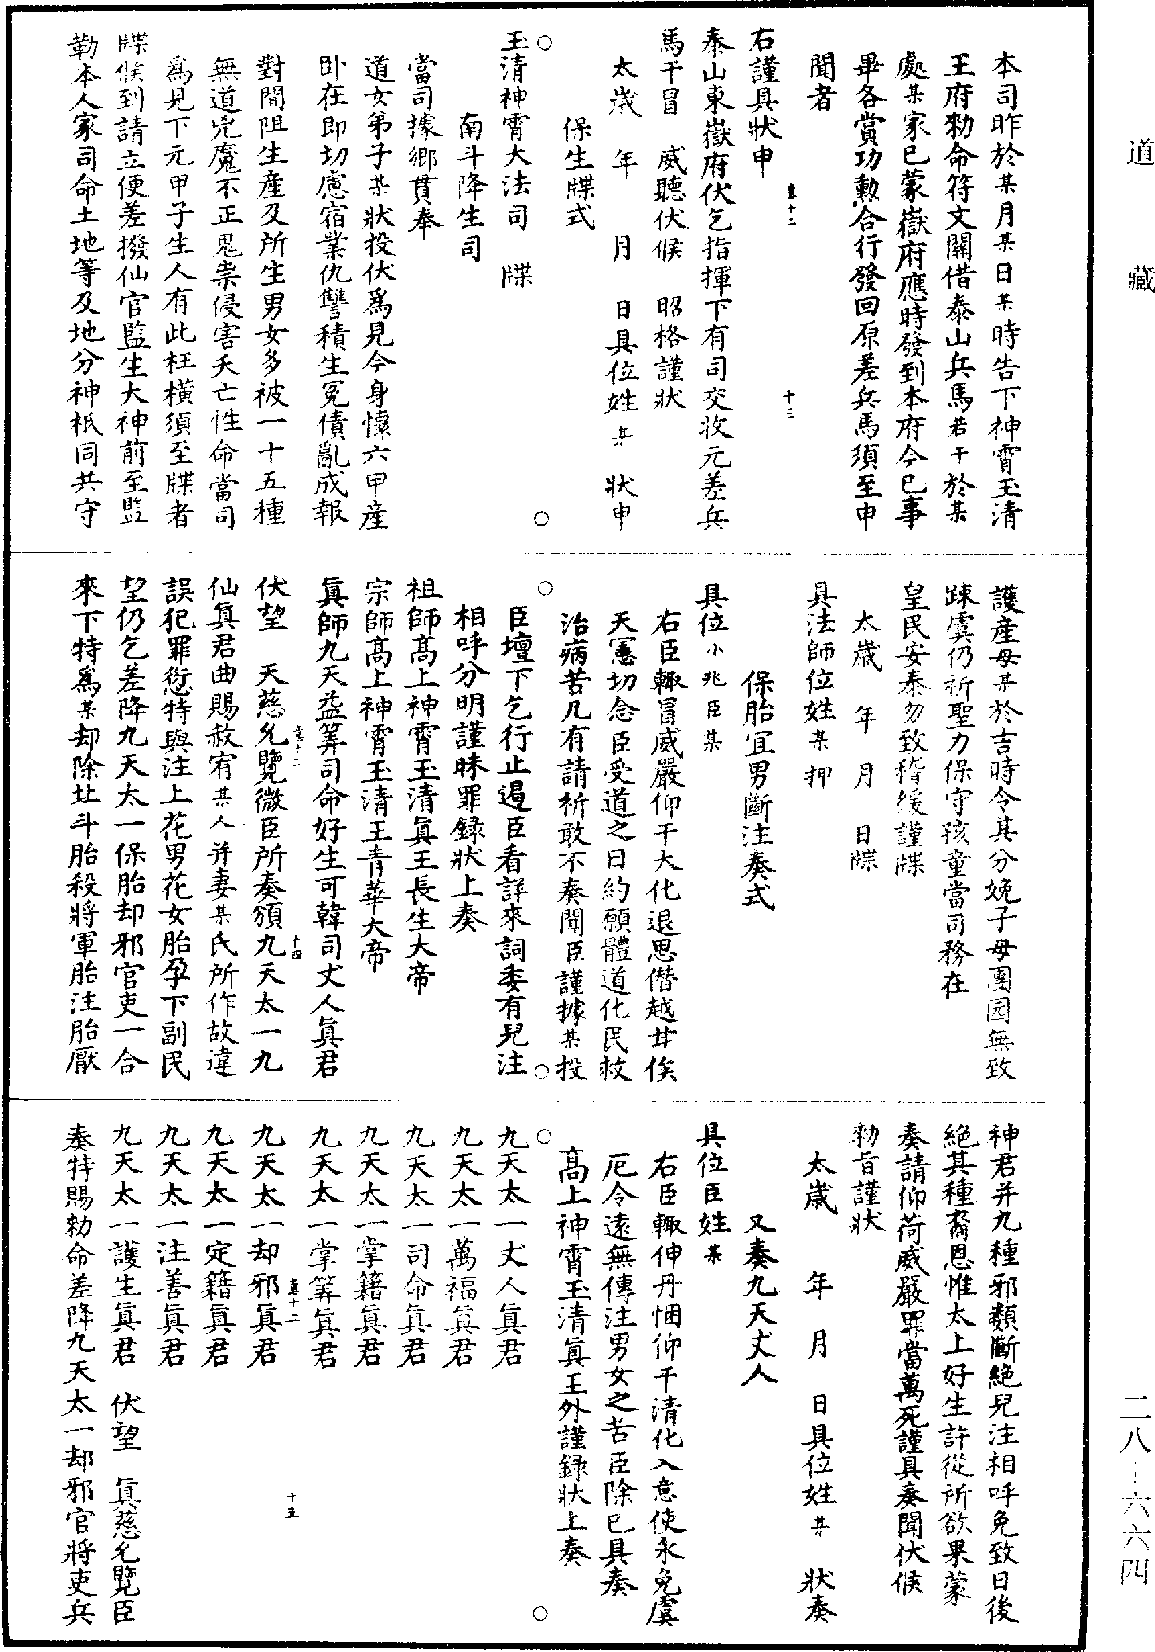 道藏
本司昨於某月某日某時告下神霄玉清
王府勑命符文關借泰山兵馬若干於某
處某家已蒙嶽府應時發到本府今已事
畢各賞功勲合行發回原差兵馬須至申
聞者
右謹具狀申
泰山東嶽府伏乞指揮下有司交收元差兵
馬干冒　威聽伏候　昭格謹狀
太歲　年　月　日具位姓某　狀申
保生牒式
玉清神霄大法司　牒
南斗降生司
當司據鄉貫奉
道女弟子某狀投伏爲見今身懷六甲産
卧在即切慮宿業仇讐積生冤債亂成報
對間阻生産及所生男女多被一十五種
無道兇魔不正鬼祟侵害夭亡性命當司
爲見下元甲子生人有此枉橫須至牒者
牒候到請立便差撥仙官監生大神前至監
勒本人家司命土地等及地分神祇同共守
護産母某於吉時令其分娩子母團圓無致
踈虞仍祈聖力保守孩童當司務在
皇民安泰勿致稽緩謹牒
太歲　年　月　日牒
具法師位姓某押
保胎宜男斷注奏式
具位小兆臣某
右臣輙冒威嚴仰干大化退思僭越甘俟
天憲切念臣受道之日約願體道化民救
治病苦凡有請祈敢不奏聞臣謹據某投
臣壇下乞行止遏臣看詳來詞委有兒注
相呼分明謹昧罪錄狀上奏
祖師高上神霄玉清眞王長生大帝
宗師高上神霄玉清王青華大帝
眞師九天益筭司命好生可韓司丈人眞君
伏望　天慈允覽微臣所奏頒九天太一九
仙眞君曲賜赦宥某人并妻某氏所作故違
誤犯罪愆特與注上花男花女胎孕下副民
望仍乞差降九天太一保胎却邪官吏一合
來下特爲某却除北斗胎殺將軍胎注胎厭
神君并九種邪類斷絕兒注相呼免致日後
絕其種裔恩惟太上好生許從所欲果蒙
奏請仰荷威嚴罪當萬死謹具奏聞伏候
勑旨謹狀
太歲　年　月　日具位姓某　狀奏
又奏九天丈人
具位臣姓某
右臣輙伸丹悃仰干清化入意使永免虞
厄令遠無傳注男女之苦臣除已具奏
高上神霄玉清眞王外謹錄狀上奏
九天太一丈人眞君
九天太一萬福眞君
九天太一司命眞君
九天太一掌籍眞君
九天太一掌筭眞君
九天太一却邪眞君
九天太一定籍眞君
九天太一注善眞君
九天太一護生眞君　伏望　眞慈允覽臣
奏特賜勑命差降九天太一却邪官將吏兵
二八-六六四